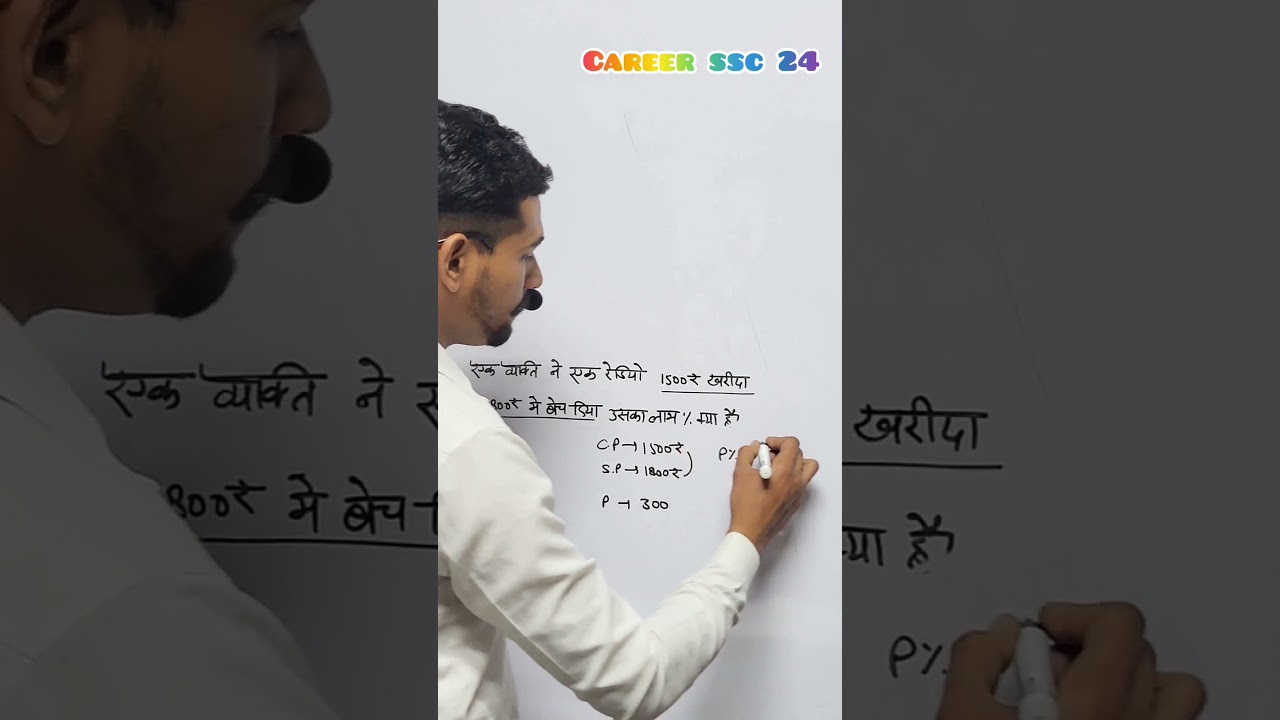 CAREER SSC 24
एक व्यक्ति ने एक रेडियो 1500₹ खरीदा
800₹ मे बेच दिया उसका लाभ % क्या है
CP → 1500₹
S.P → 1800₹
P%
P → 300